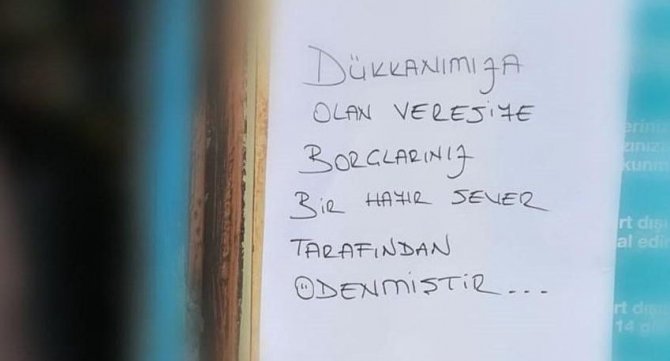 DÜKKANIMIZA
OLAN VERESİYE
BORÇLARINIZ
BİR HAYIR SEVER
TARAFINDAN
ÖDENMİŞTİR...
erini
zınız
kunm
rt dışı
al edi
rt dış
14 d